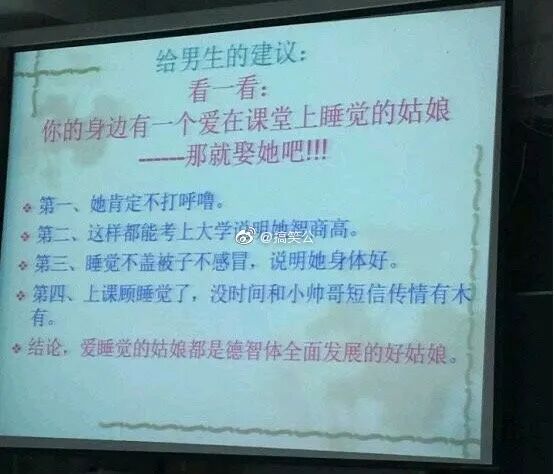 给男生的建议：
看一看：
你的身边有一个爱在课堂上睡觉的姑娘
------那就娶她吧!!!
第一、她肯定不打呼噜。
第二、这样都能考上大学说明她智商高。
@搞笑公
第三、睡觉不盖被子不感冒，说明她身体好。
第四、上课顾睡觉了，没时间和小帅哥短信传情有木
有。
结论，爱睡觉的姑娘都是德智体全面发展的好姑娘。